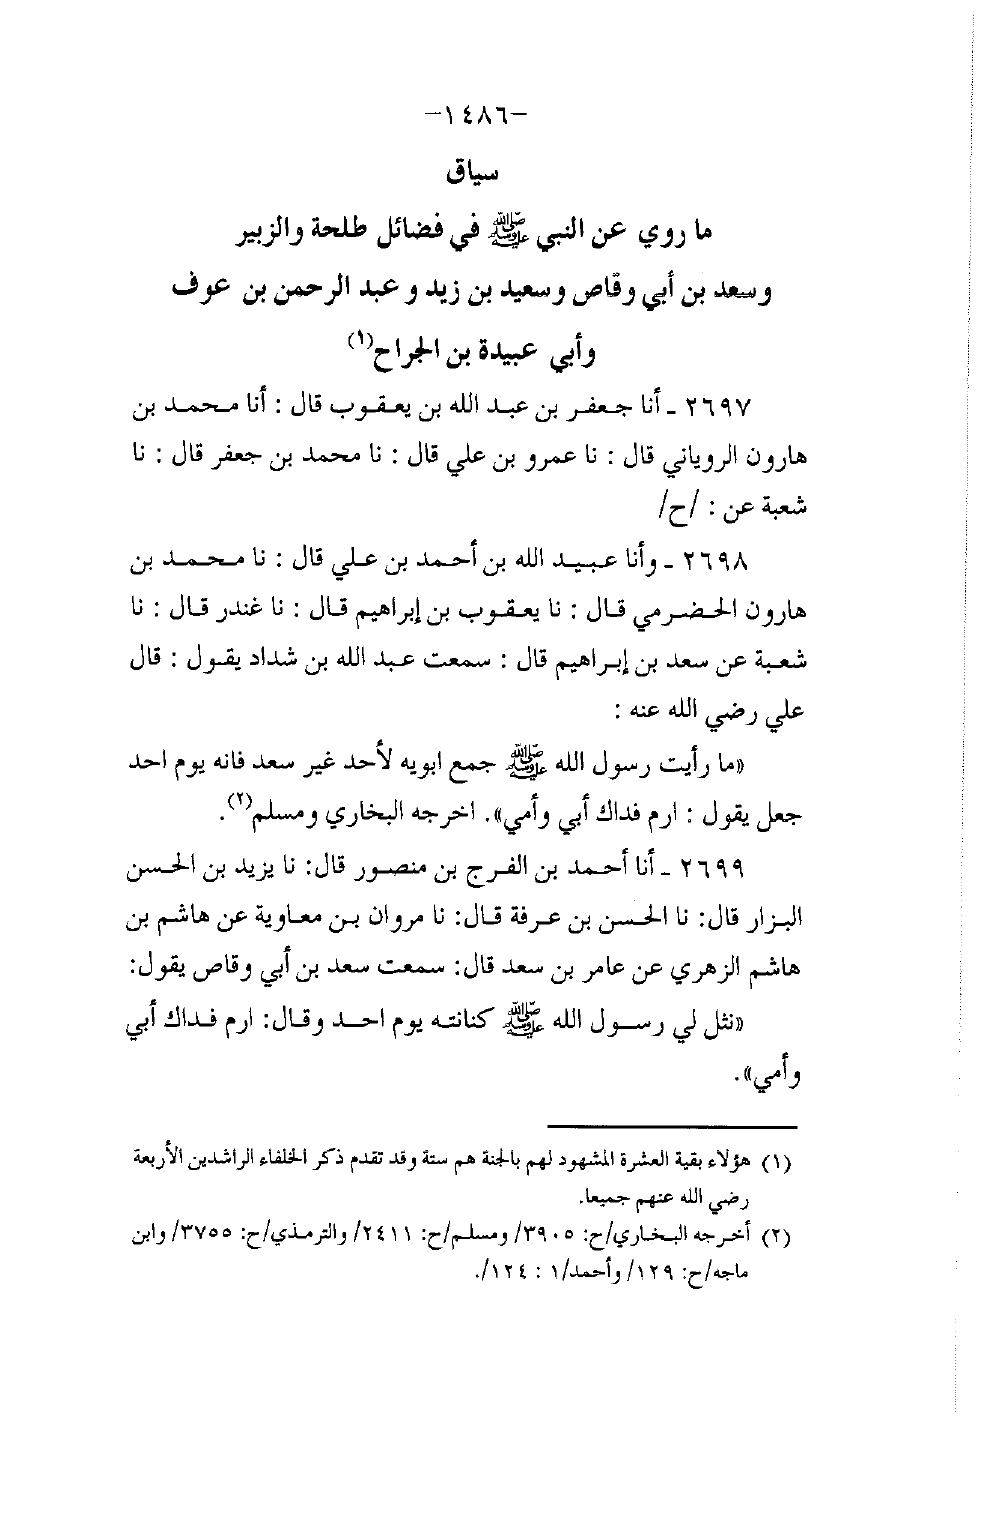 -١٤٨٦-
سياق
ما روي عن النبي ﷺ في فضائل طلحة والزبير
وسعد بن أبي وقاص وسعيد بن زيد وعبد الرحمن بن عوف
وأبي عبيدة بن الجراح(١)
٢٦٩٧ ـ أنا جعفر بن عبد الله بن يعقوب قال : أنا محمد بن
هارون الروياني قال : نا عمرو بن علي قال : نا محمد بن جعفر قال : نا
شعبة عن : /ح/
٢٦٩٨ ـ وأنا عبيد الله بن أحمد بن علي قال : نا محمد بن
هارون الحضرمي قال : نا يعقوب بن إبراهيم قال : نا غندر قال : نا
شعبة عن سعد بن إبراهيم قال : سمعت عبد الله بن شداد يقول : قال
علي رضي الله عنه :
«ما رأيت رسول الله ﷺ جمع ابويه لأحد غير سعد فانه يوم احد
جعل يقول : ارم فداك أبي وأمي». اخرجه البخاري ومسلم(٢).
٢٦٩٩ ـ أنا أحمد بن الفرج بن منصور قال: نا يزيد بن الحسن
البزار قال: نا الحسن بن عرفة قال: نا مروان بن معاوية عن هاشم بن
هاشم الزهري عن عامر بن سعد قال: سمعت سعد بن أبي وقاص يقول:
«نثل لي رسول الله ﷺ كنانته يوم احد وقال: ارم فداك أبي
وأمي».
(١) هؤلاء بقية العشرة المشهود لهم بالجنة هم ستة وقد تقدم ذكر الخلفاء الراشدين الأربعة
رضي الله عنهم جميعا.
(٢) أخرجه البخاري/ح: ٣٩٠٥/ ومسلم/ح: ٢٤١١/ والترمذي/ح: ٣٧٥٥/ وابن
ماجه/ح: ١٢٩/ وأحمد/١ : ١٢٤/.